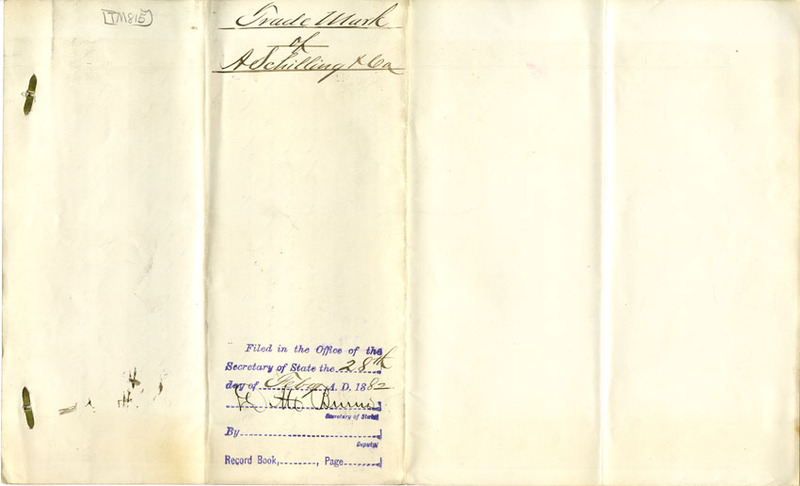 TM815
Trade Mark
of
A Schilling & Co
Filed in the Office of the
Secretary of State the 28th
day of Feby A. D. 1882
Burns
Secretary of State
By
Deputy
Record Book, , Page